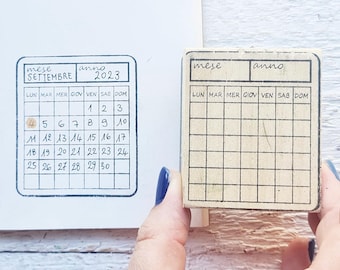 mese anno
SETTEMBRE 2023
LUN MAR MER GIOV VEN SAB DOM
1 2 3
4 5 6 7 8 9 10
11 12 13 14 15 16 17
18 19 20 21 22 23 24
25 26 27 28 29 30
mese anno
LUN MAR MER GIOV VEN SAB DOM